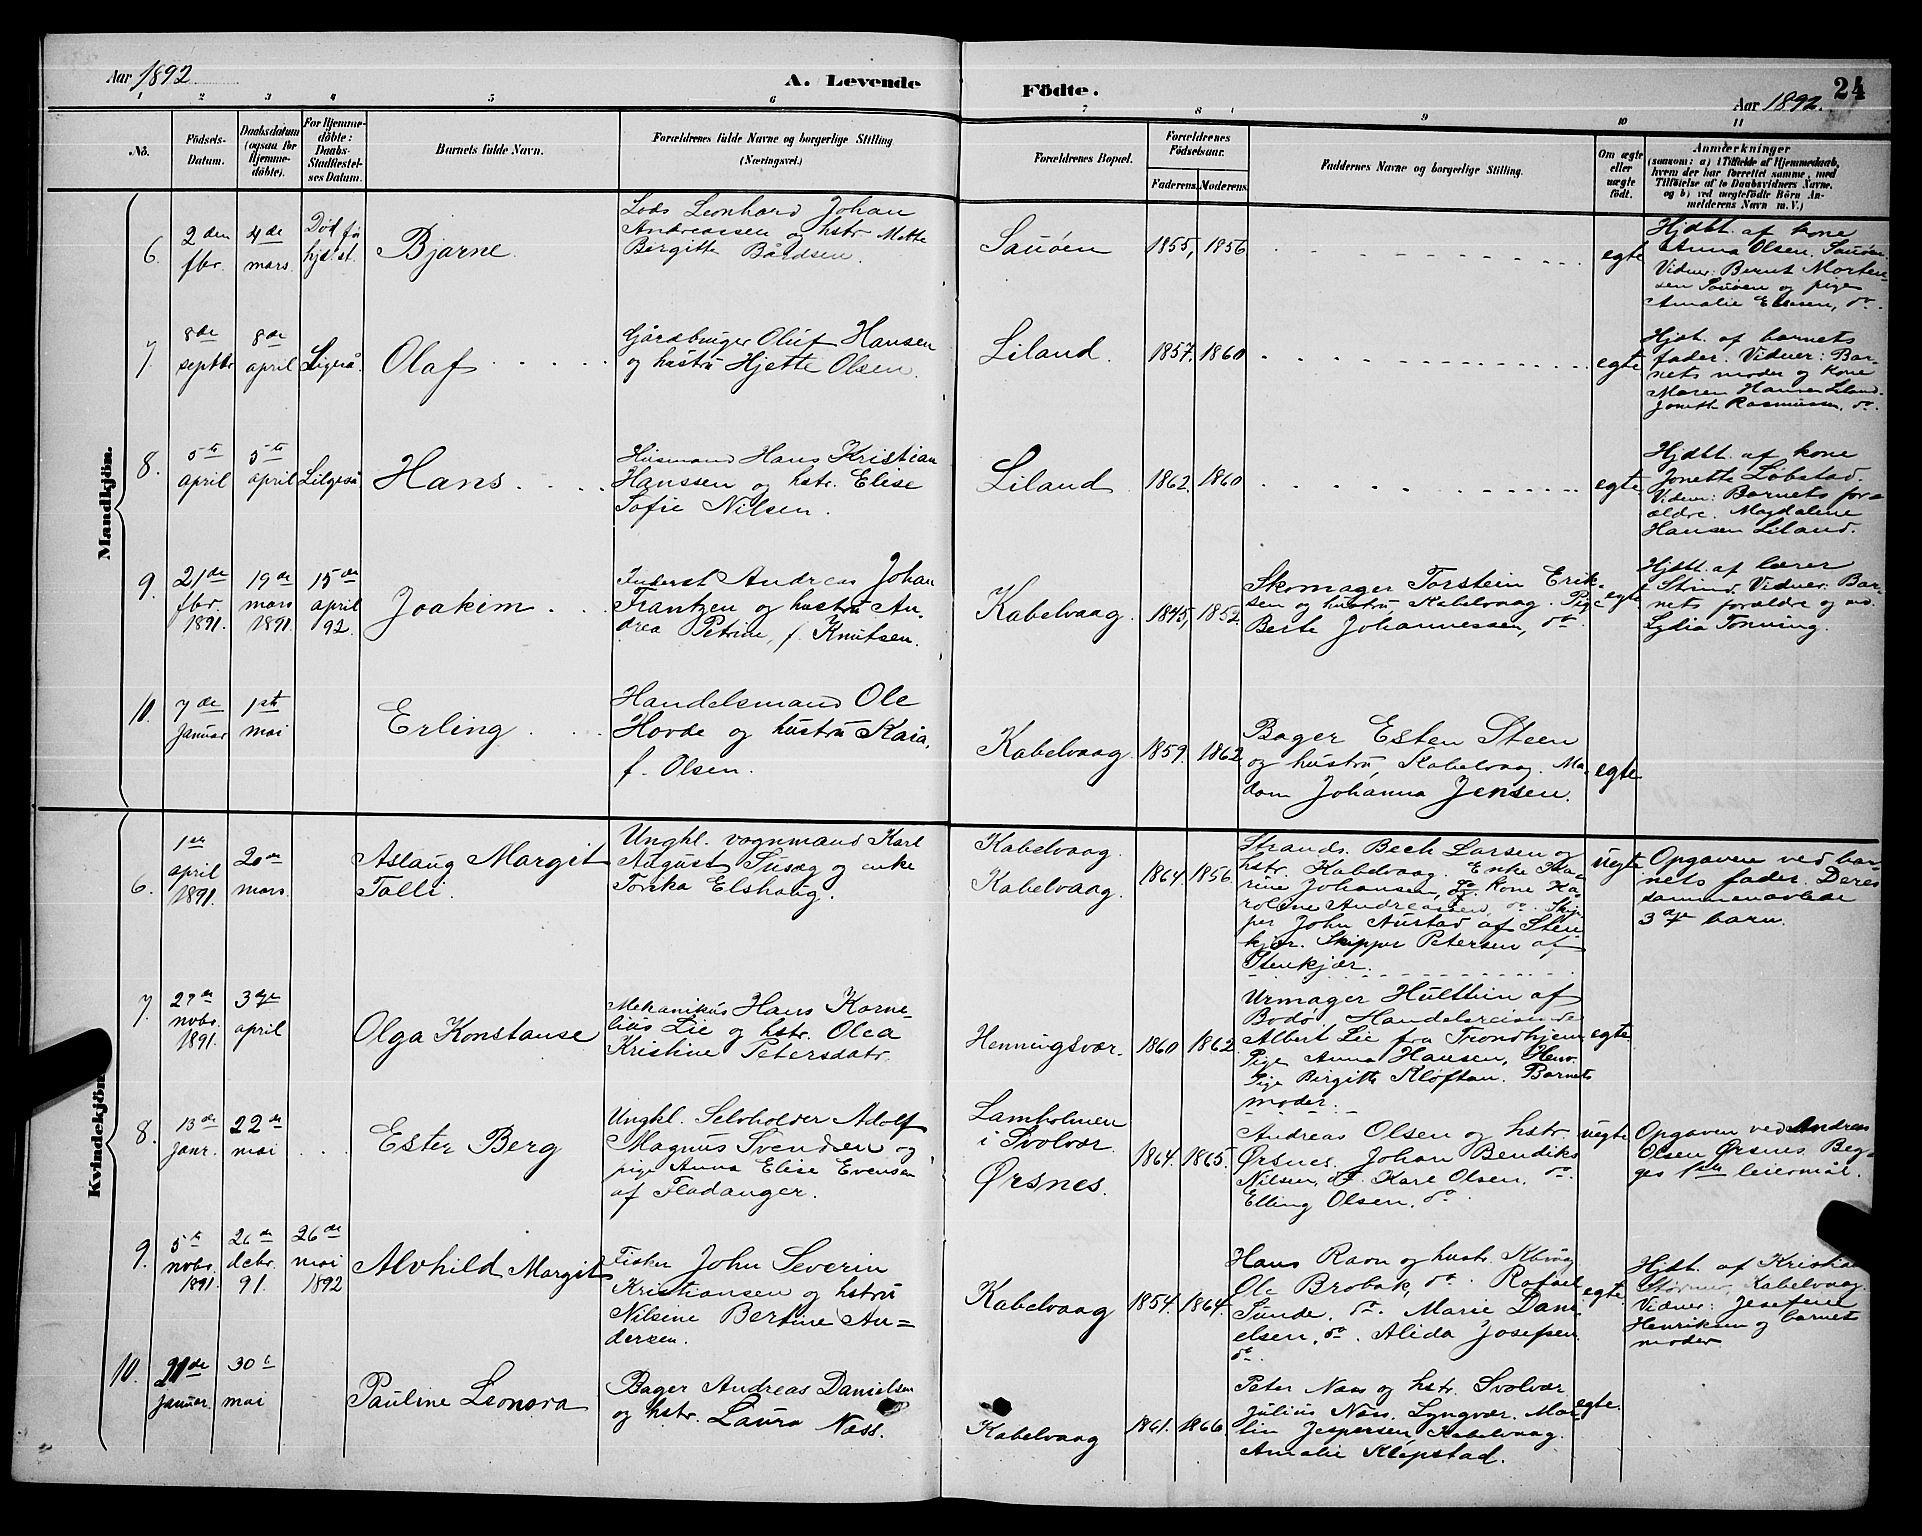 Aar 1892
A. Levende
Födte.
Aar 1892.
24
1
2
3
4
5
6
7
8
9
10
11
No.
Födsels-
Datum.
Daabsdatum
(ogsaa for
Hjemme-
döbte).
For Hjemme-
döbte:
Daabs-
Stadfæstel-
ses Datum.
Barnets fulde Navn.
Forældrenes fulde Navne og borgerlige Stilling
(Næringsvei.)
Forældrenes Bopæl.
Forældrenes
Födselsaar.
Faderens.
Moderens.
Faddernes Navne og borgerlige Stilling.
Om ægte
eller
uægte
født.
Anmærkninger
(saasom: a) i Tilfælde af Hjemmedaab,
hvem der har forrettet samme, med
Tilföielse af to Daabsvidners Navne,
og b) ved uægtefödte Börn An-
melderens Navn m. V.)
Mandkjön.
6.
2den
fbr.
4de
mars
Död fø
hjst.
Bjarne.
Lods Leonhard Johan
Andreassen og hstr. Mette
Birgitte Bårdsen.
Sauöen
1855,
1856
egte
Hjdbt. af kone
Anna Olsen, Sauöen.
Vidner: Bernt Morten-
sen Sauöen og pige
Amalie do.
7.
8de
septbr
8de
april
Olaf
Gårdbruger Oluf Hansen
og hustru Hjette Olsen.
Liland.
1857.
1860
egte
Hjdt. af barnets
fader. Vidner: Bar-
nets moder og kone
Maren Hansen Liland.
Rasmussen, do.
8.
5te
april
5te
april
Hans
Husmand Hans Kristian
Hanssen og hstr. Elise
Sofie Nilsen.
Liland
1862.
1860
egte
Hjdbt. af kone
Jonette Löbstad.
Vidner: Barnets for-
ældre. Magdalene
Hansen Liland.
9.
21de
fbr.
1891.
19de
mars
1891.
15de
april
92.
Joakim
Inderst Andreas Johan
Frantzen og hustru An-
drea Petrine, f. Knutsen.
Kabelvaag
1845,
1852.
Skomager Torstein Erik-
sen og hustru, Kabelvaag. Pige
Berte Johannessen, do.
egte
Hjdbt. af lærer
Strind. Vidner: Bar-
nets forældre og
Lydia Tonning.
10.
7de
januar
1ste
mai
Erling
Handelsmand Ole
Hovde og hustru Kaia,
f. Olsen.
Kabelvaag
1859.
1862.
Bager Esten Steen
og hustru, Kabelvaag. Ma-
dam Johanna Jensen.
egte
Kvindekjön.
6.
1ste
april
1891.
20de
mars.
Aslaug Margit
Tolli
Ungkl. vognmand Karl
August Susæg og enke
Torika Elshaug.
Kabelvaag.
Kabelvaag.
1864.
1856.
Strands. Bech Larsen og
hstr. Kabelvaag. Enke
Johansen, do. Kone Ka-
roline Andreassen, do. Skip-
per John Austad af Sten-
kjær. Skipper Petersen af
Stenkjær.
uegte
Opgaven ved bar-
nets fader. Deres
sammenavlede
3die barn.
7.
27de
nobr.
1891.
3die
april
Olga Konstanse
Mekanikus Hans Korne-
lius Lie og hstr. Olea
Kristine Petersdatr.
Henningsvær.
1860
1862.
Urmager Hulthin af
Bodø. Handelsreisende
Albert Lie fra Trondhjem
Pige Anna Hansen, Henv.
Pige Birgitte Kloftan. Barnets
moder.
egte
8.
13de
janr.
22de
mai
Ester Berg
Ungkl. Selvholder Adolf
Magnus Svendsen og
pige Anna Elise Evensen
af Fladanger.
Lamholmen
i Svolvær
Ørsnes.
1864.
1865.
Andreas Olsen og hstr.
Ørsnes. Johan Bendiks
Nilsen, do. Karl Olsen, do.
Elling Olsen, do.
uegte
Opgaven ved Andreas
Olsen Ørsnes. Beg-
ges 1ste leiermål.
9.
5te
nobr.
1891.
26de
debr.
91.
26de
mai
1892
Alvhild Margit
Fisker John Severin
Kristiansen og hstru
Nilsine Bertine An-
dersen.
Kabelvaag
1854.
1864.
Hans Ravn og hustr.
Ole Brobak, do. Rafael
Sunde, do. Marie Dani-
elsen, do. Alida Josefsen
do.
egte.
Hjdt. af Kristian
Størmer, Kabelvaag.
Vidner: Josefine
Henriksen og barnets
moder
10.
januar.
30te
mai
Pauline Leonora
Bager Andreas Danielsen
og hstr. Laura Næss.
Kabelvaag
1861.
1866.
Peter Næss og hstr. Svolvær
Julius Næss, Lyngvær. Ma-
lin Jespersen, Kabelvaag.
Amalie Klepstad.
egte.